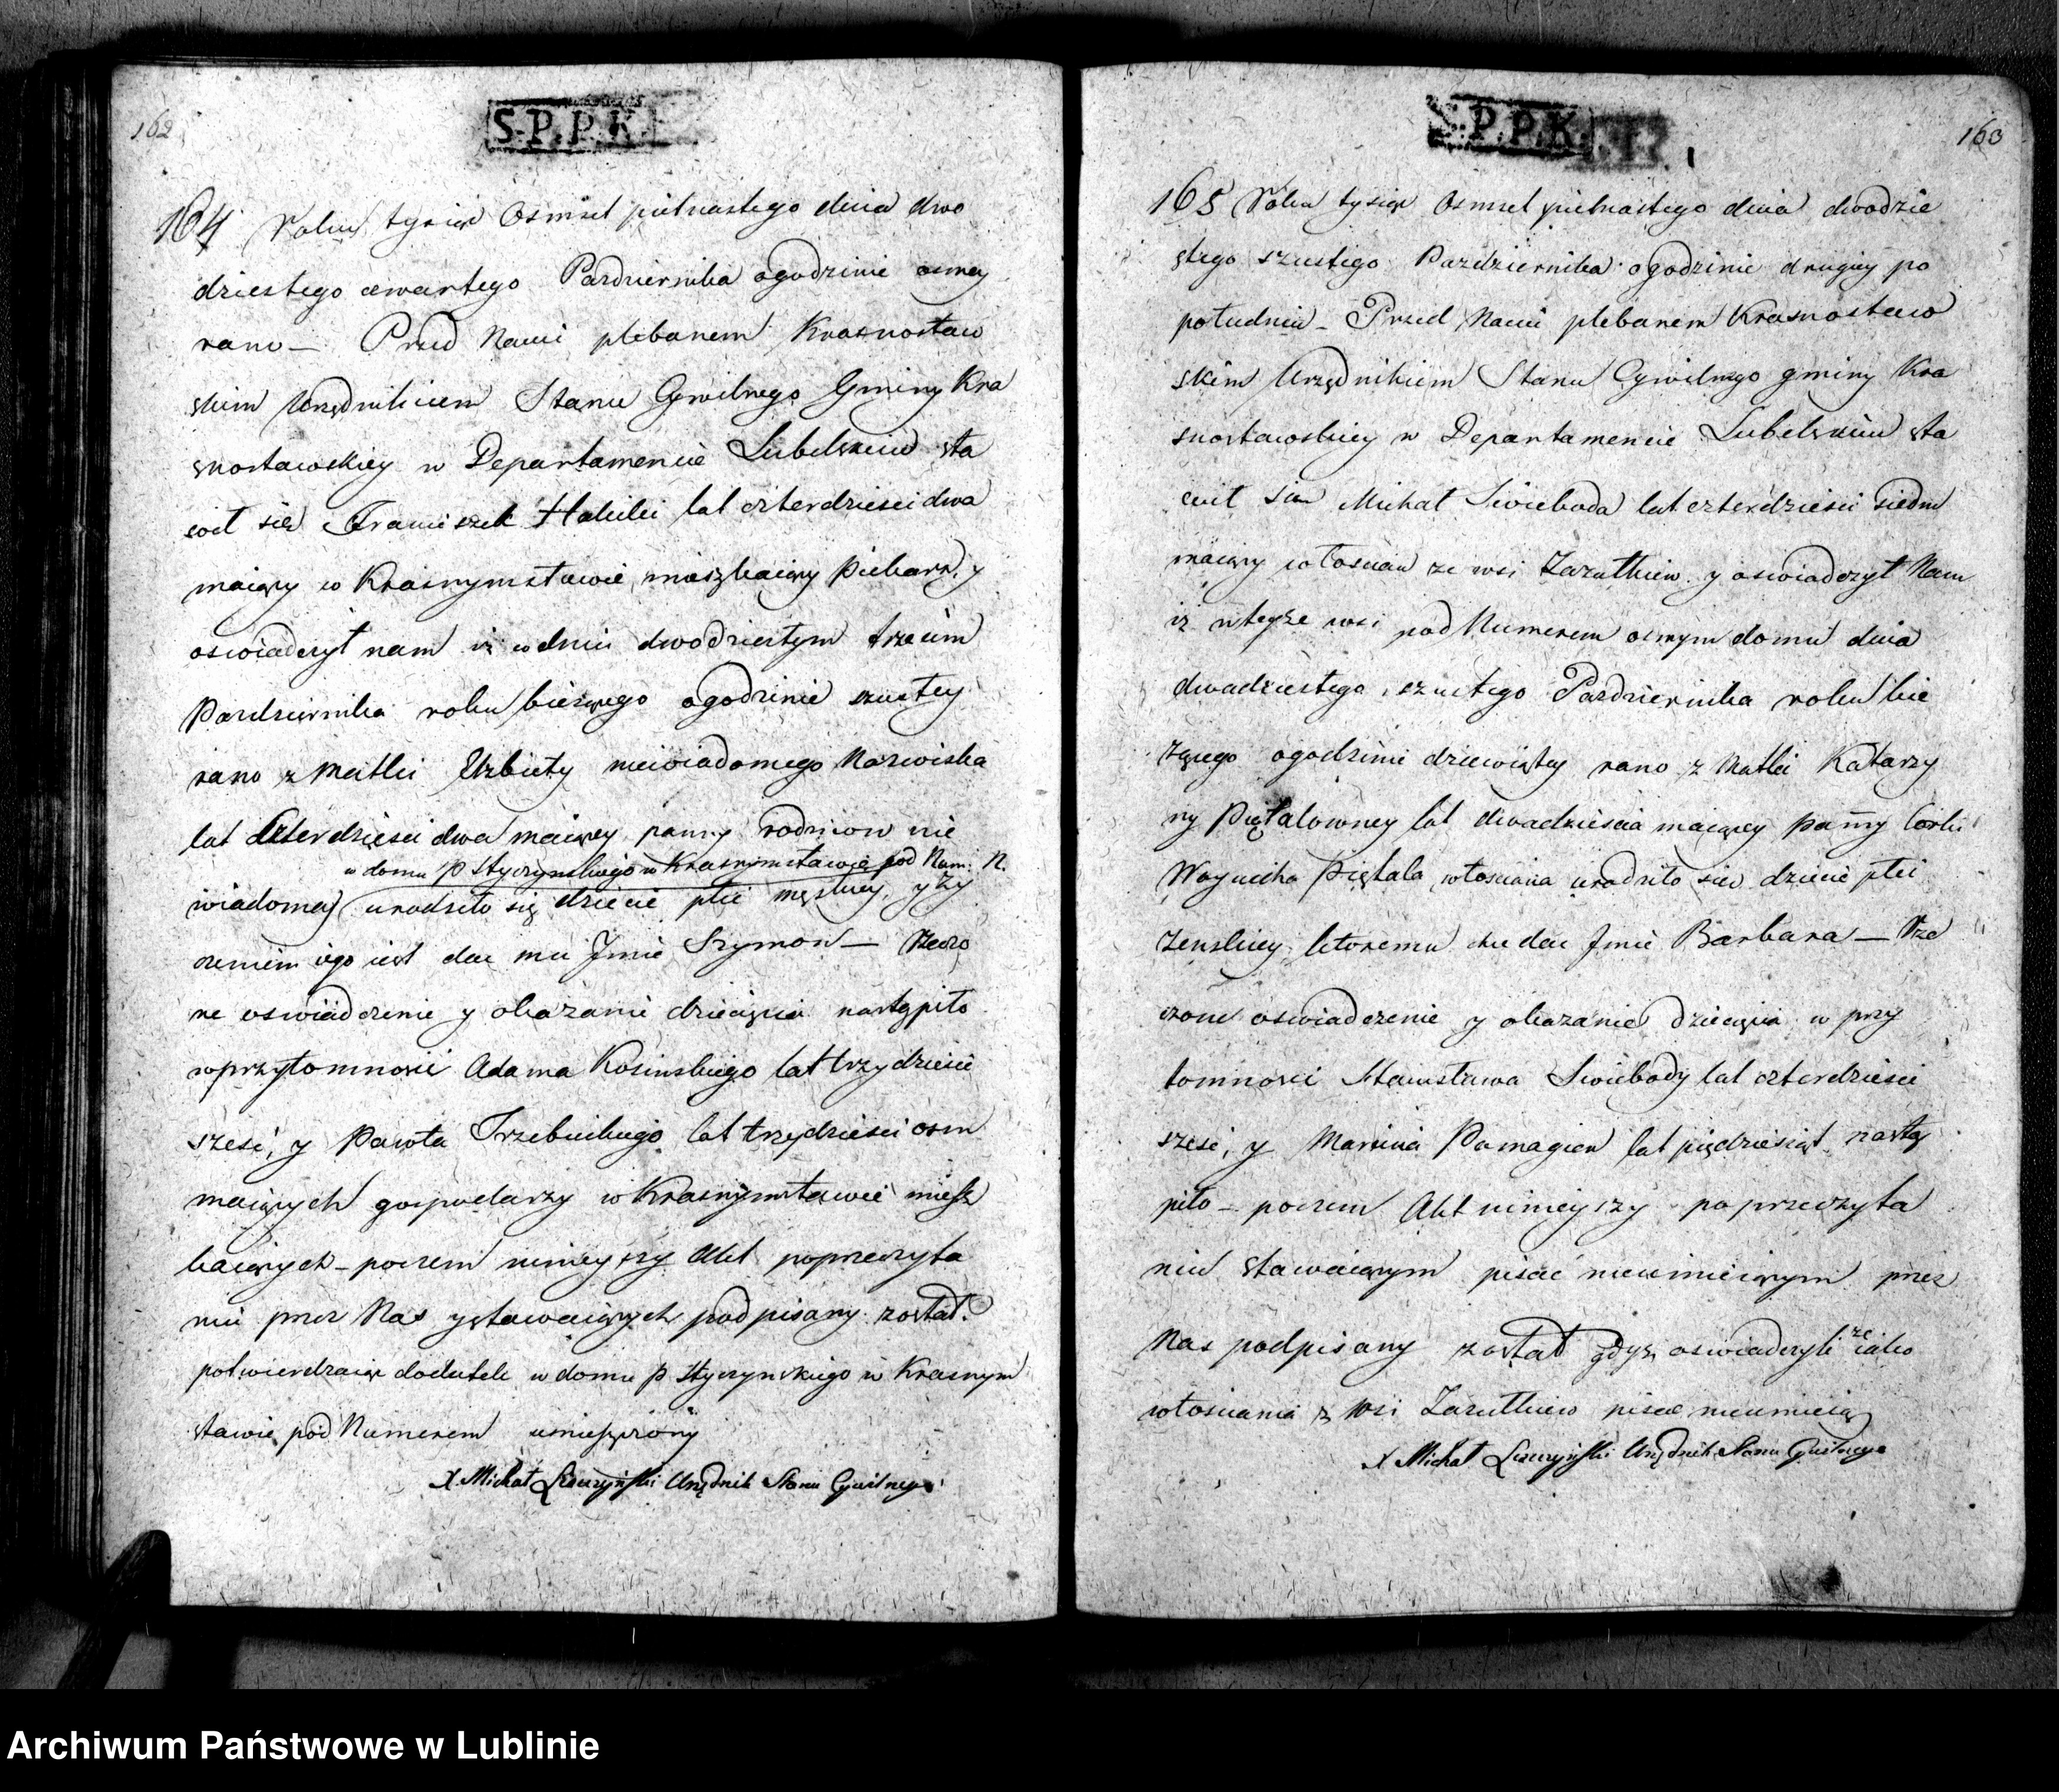 162
S.P.P.K.
164 Roku tysiąc Osmset pietnastego dnia dwo
dziestego czwartego Pazdziernika ogodzinie osmey
rano – Przed Nami plebanem Krasnostaw
skim Urzędnikiem Stanu Cywilnego Gminy Kra
snostawskiey w Departamencie Lubelskim sta
wił się Franciszek lat czterdziesci dwa
maiący w Krasnymstawie mieszkaiący Piekarz, y
oswiadczył nam iż w dniu dwodziestym trzecim
Pazdziernika roku bieżącego ogodzinie szustey
rano z Matki Elzbiety niewiadomego Nazwiska
lat Czterdziesci dwa maiącey panny rodzicow nie
w domu P Styczynskiego w Krasnymstawie pod Num: N.
wiadomey urodziło się dziecie płci męskiey, y ży
czeniem iego iest dac mu Jmie Szymon –
ne oswiadczenie y okazanie dziecięcia nastąpiło
wprzytomnosci Adama Kosinskiego lat trzydziesci
szesć, y Pawła Trzebuckiego lat trzydziesci osm
maiących gospodarzy w Krasnymstawie miesz
kaiących – poczem nineyszy Akt poprzeczyta
niu przez Nas ystawaiących podpisany został.
potwierdzaiąc dodatek w domu P Styczynskiego w Krasnym
stawie pod Numerem umieszczony
X. Michał Leszczyński Urzędnik Stanu Cywilnego
S.P.P.K.
163
165 Roku tysiąc Osmset pietnastego dnia dwodzie
stego szustego Pazdziernika ogodzinie drugiey po
południu – Przed Nami plebanem Krasnostaw
skim Urzędnikiem Stanu Cywilnego gminy Kra
snostawskiey w Departamencie Lubelskim sta
wił sie Michał Swieboda lat czterdziesci siedm
maiący włoscian ze wsi Zazułkiew y oswiadczył Nam
iż wteyże wsi pod Numerem osmym domu dnia
dwadziestego szustego Pazdziernika roku bie
żącego ogodzinie dziewiątey rano z Matki Katarzy
ny Piętalowney lat dwadziescia maiącey panny Corki
Woyciecha Piętala włoscianina urodziło sie dziecie płci
Zenskiey, ktoremu chce dac Jmie Barbara –
czone oswiadczenie y okazanie dziecięcia w przy
tomnosci Stanisława Swiebody lat czterdziesci
szesć, y Marcina Pamagier lat piędziesiąt nastą
piło – poczem Akt ninieyszy po przeczyta
niu stawaiącym pisać nieumieiącym przez
Nas podpisany został gdyż oswiadczyli że iako
włoscianie z Wsi Zazułkiew pisac nieumieią
X Michał Leszczyński Urzędnik Stanu Cywilnego
Archiwum Państwowe w Lublinie